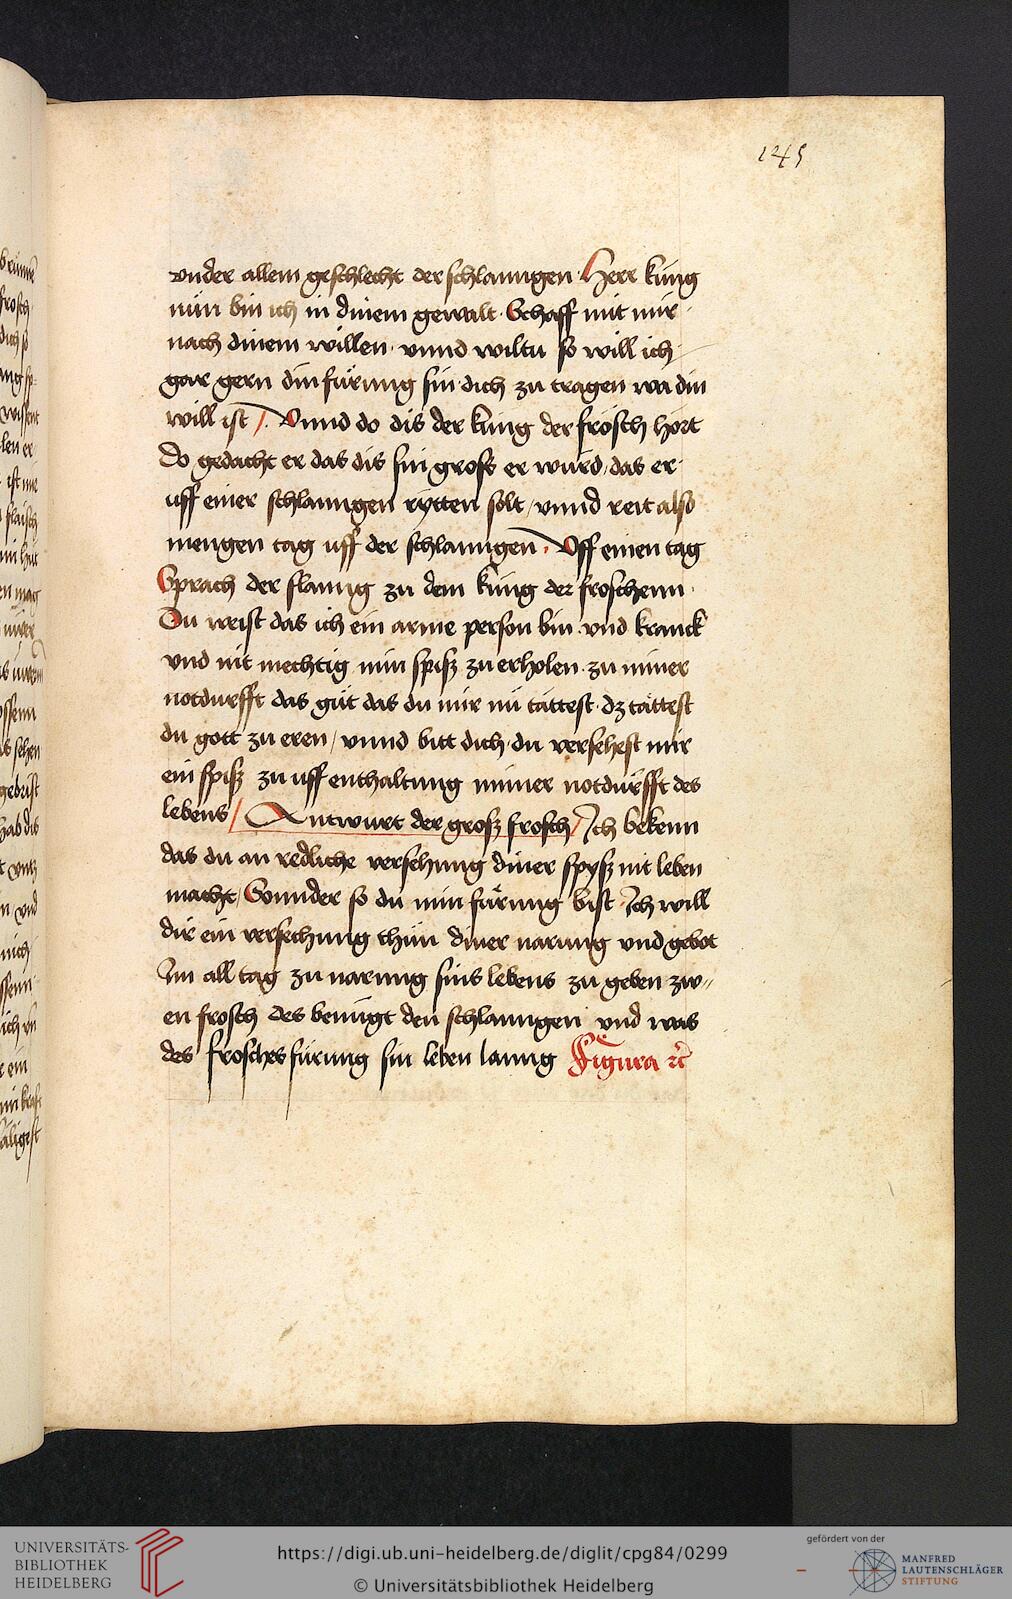 145
vnder allem geschlecht der schlanngen · Herr küng
nün bin ich in dinem gewalt · Schaff mit mir ·
nach dinem willen · vnnd wiltu so will ich
gar gern din fürung sin · dich zu tragen wa din
will ist /. Vnnd do dis der küng der frösch hört
Do gedacht er das dis sin gross er würd / das er
uff einer schlanngen rytten solt / vnnd reit also
mengen tag uff der schlanngen · Vff einen tag
Sprach der slanng zu dem küng der froschenn ·
Du weist das ich ein arme person bin · vnd kranck
vnd nit mechtig min spisz zu erholen · zu miner
notdurfft das güt das du mir nü tättest · dz tättest
du gott zu eren / vnnd bitt dich · du versehest mir
ein spisz zu uff enthaltung miner notdürfft des
lebens / Antwurt der grosz frosch / Ich bekenn
das du an redliche versehung diner spysz nit leben
macht / Sonnder so du min fürung bist · Ich will
dir ein versechung thün diner narung vnd gebot
Im all tag zu narung sins lebens zu geben zw〃
en frosch des benügt den schlanngen vnd was
des frosches fürung sin leben lanng Figura ꝛc
UNIVERSITÄTS-
BIBLIOTHEK
HEIDELBERG
https://digi.ub.uni-heidelberg.de/diglit/cpg84/0299
© Universitätsbibliothek Heidelberg
gefördert von der
MANFRED
LAUTENSCHLÄGER
STIFTUNG